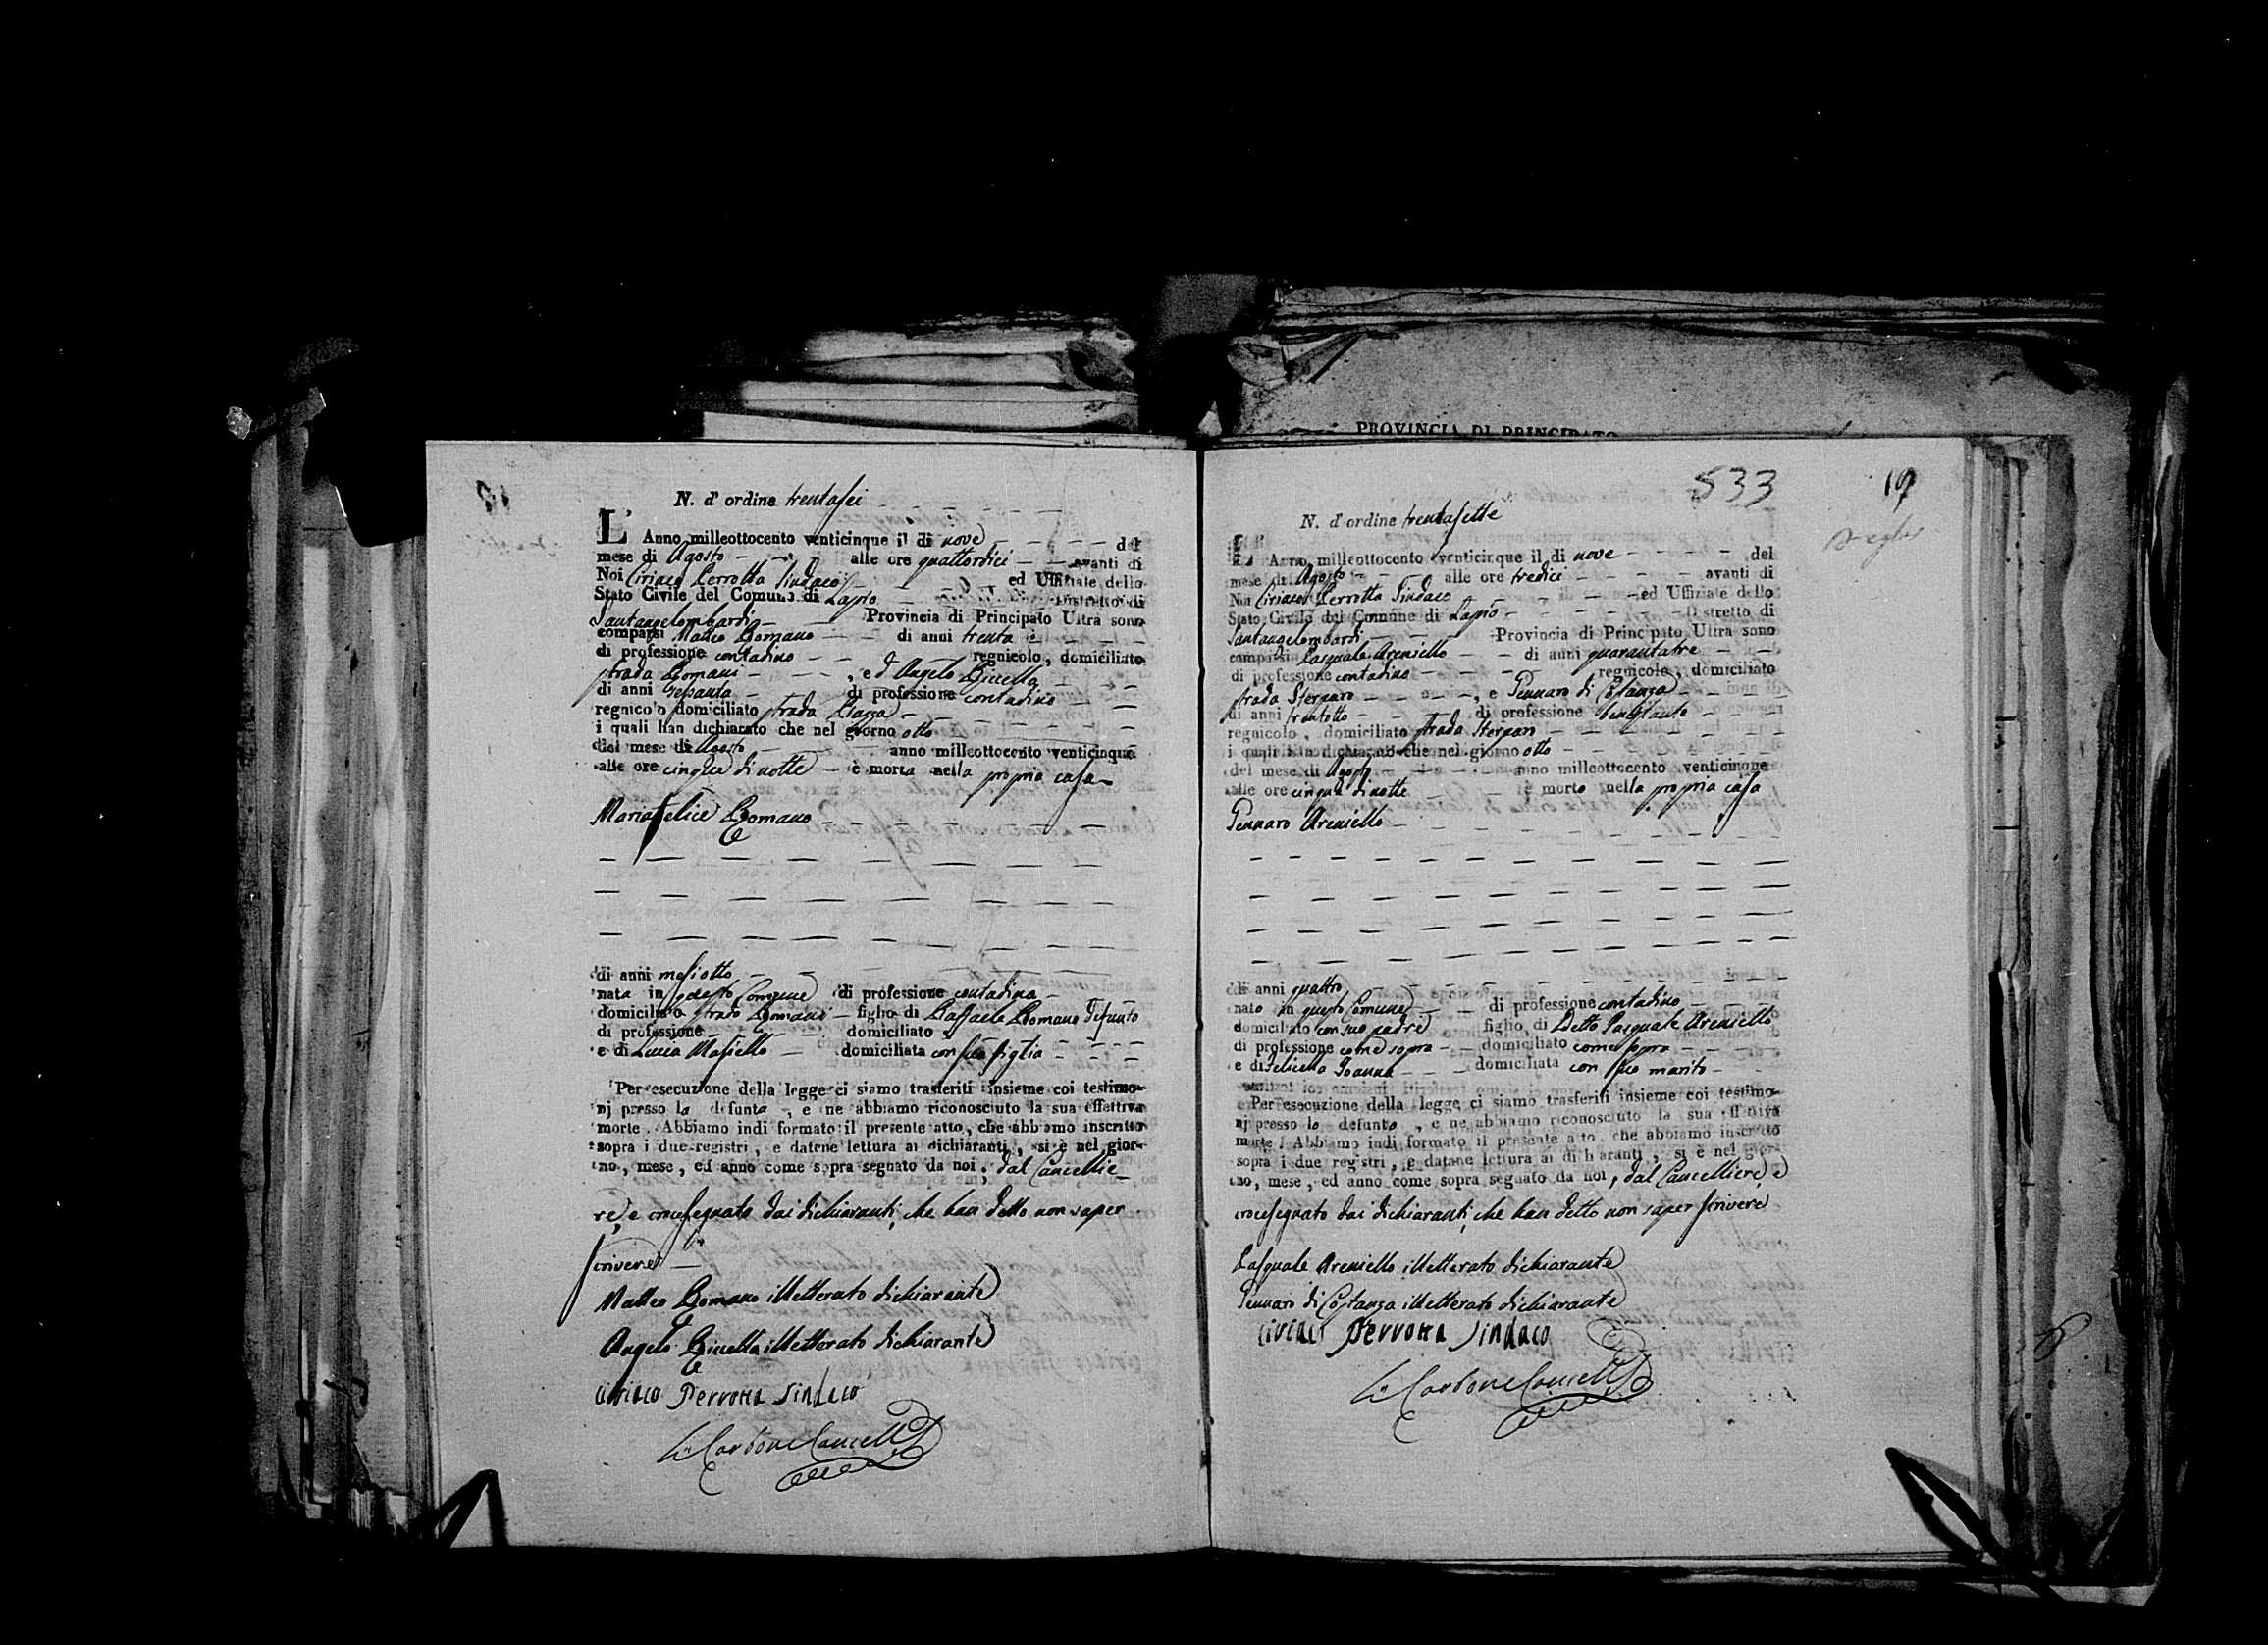 PROVINCIA DI PRINCIPATO
N. d' ordine trentasei
L' Anno milleottocento venticinque il di nove del
mese di Agosto alle ore quattordici avanti di
Noi Ciriaco Perrotta Sindaco ed Uffiziale dello
Stato Civile del Comune di Lapio Distretto di
Santangelombardi Provincia di Principato Ultra sono
comparsi Matteo Romano di anni trenta
di professione contadino regnicolo, domiciliato
strada Romani, ed Angelo
di anni sessanta di professione contadino
regnicolo domiciliato strada Piazza
i quali han dichiarato che nel giorno otto
del mese di Agosto anno milleottocento venticinque
alle ore cinque di notte è morta nella propria casa
Mariafelice Romano
di anni mesi otto
nata in questo Comune di professione contadina
domiciliato strada Romani figlia di Raffaele Romano defunto
di professione domiciliato
e di Lucia Masiello domiciliata con sua figlia
Per esecuzione della legge ci siamo trasferiti insieme coi testimo-
nj presso la defunta, e ne abbiamo riconosciuto la sua effettiva
morte. Abbiamo indi formato il presente atto, che abbiamo inscritto
sopra i due registri, e datene lettura ai dichiaranti, si è nel gior-
no, mese, ed anno come sopra segnato da noi, dal Cancellie-
re, e crocesegnato dai dichiaranti, che han detto non saper
scrivere
Matteo Romano illetterato dichiarante
Angelo illetterato dichiarante
Ciriaco Perrotta Sindaco
Carbone Cancell
533
19
N. d' ordine trentasette
L' Anno milleottocento venticinque il di nove del
mese di Agosto alle ore tredici avanti di
Noi Ciriaco Perrotta Sindaco ed Uffiziale dello
Stato Civile del Comune di Lapio Distretto di
Santangelombardi Provincia di Principato Ultra sono
comparsi Pasquale Areniello di anni quarantatre
di professione contadino regnicolo, domiciliato
strada Sterparo, e Gennaro di Costanza
di anni trentotto di professione benestante
regnicolo, domiciliato strada Sterparo
i quali han dichiarato che nel giorno otto
del mese di Agosto anno milleottocento venticinque
alle ore cinque di notte è morto nella propria casa
Gennaro Areniello
di anni quattro
nato in questo Comune di professione contadino
domiciliato con suo padre figlio di Detto Pasquale Areniello
di professione come sopra domiciliato come sopra
e di Felicella Ioanna domiciliata con suo marito
Per esecuzione della legge ci siamo trasferiti insieme coi testimo-
nj presso lo defunto, e ne abbiamo riconosciuto la sua effettiva
morte. Abbiamo indi formato il presente atto, che abbiamo inscritto
sopra i due registri, e datane lettura ai dichiaranti, si è nel gior-
no, mese, ed anno come sopra segnato da noi, dal Cancelliere, e
crocesegnato dai dichiaranti, che han detto non saper scrivere
Pasquale Areniello illetterato dichiarante
Gennaro di Costanza illetterato dichiarante
Ciriaco Perrotta Sindaco
Carbone Cancell